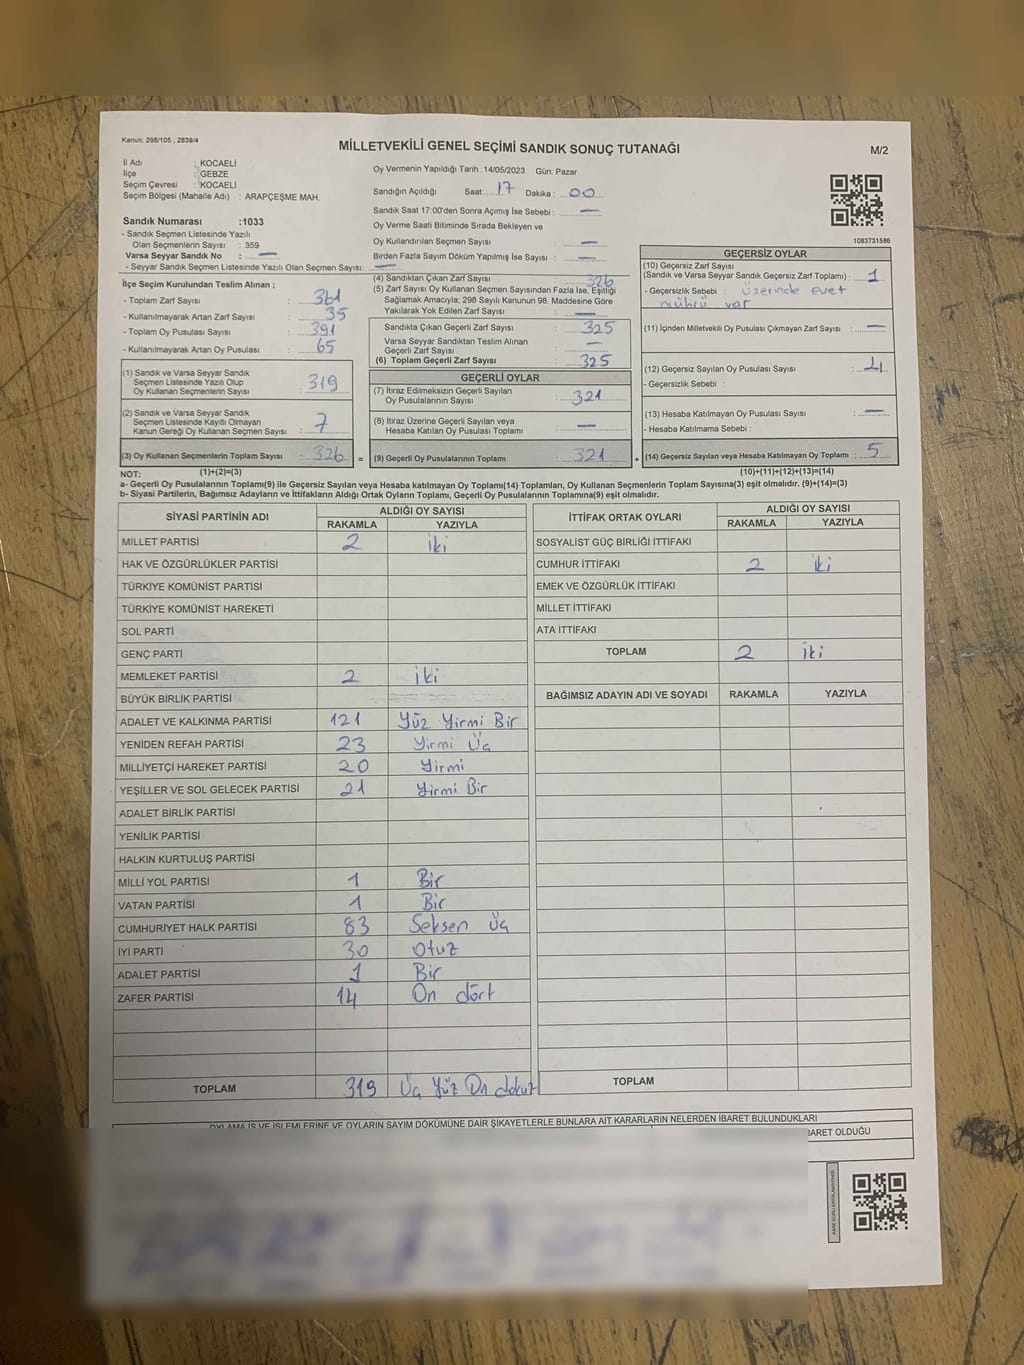 Kanun: 298/105 , 2839/4
MİLLETVEKİLİ GENEL SEÇİMİ SANDIK SONUÇ TUTANAĞI
M/2
İl Adı : KOCAELİ
İlçe : GEBZE
Seçim Çevresi : KOCAELİ
Seçim Bölgesi (Mahalle Adı) : ARAPÇEŞME MAH.
Sandık Numarası :1033
- Sandık Seçmen Listesinde Yazılı
Olan Seçmenlerin Sayısı : 359
Varsa Seyyar Sandık No : —
- Seyyar Sandık Seçmen Listesinde Yazılı Olan Seçmen Sayısı: —
İlçe Seçim Kurulundan Teslim Alınan ;
- Toplam Zarf Sayısı : 361
- Kullanılmayarak Artan Zarf Sayısı : 35
- Toplam Oy Pusulası Sayısı : 391
- Kullanılmayarak Artan Oy Pusulası : 65
(1) Sandık ve Varsa Seyyar Sandık
Seçmen Listesinde Yazılı Olup
Oy Kullanan Seçmenlerin Sayısı : 319
(2) Sandık ve Varsa Seyyar Sandık
Seçmen Listesinde Kayıtlı Olmayan
Kanun Gereği Oy Kullanan Seçmen Sayısı : 7
(3) Oy Kullanan Seçmenlerin Toplam Sayısı : 326
Oy Vermenin Yapıldığı Tarih :14/05/2023 Gün: Pazar
Sandığın Açıldığı Saat: 17 Dakika : 00
Sandık Saat 17:00'den Sonra Açımış İse Sebebi : —
Oy Verme Saati Bitiminde Sırada Bekleyen ve
Oy Kullandırılan Seçmen Sayısı : —
Birden Fazla Sayım Döküm Yapılmış İse Sayısı : —
(4) Sandıktan Çıkan Zarf Sayısı : 326
(5) Zarf Sayısı Oy Kullanan Seçmen Sayısından Fazla İse, Eşitliği
Sağlamak Amacıyla; 298 Sayılı Kanunun 98. Maddesine Göre
Yakılarak Yok Edilen Zarf Sayısı : —
Sandıkta Çıkan Geçerli Zarf Sayısı : 325
Varsa Seyyar Sandıktan Teslim Alınan
Geçerli Zarf Sayısı : —
(6) Toplam Geçerli Zarf Sayısı : 325
GEÇERLİ OYLAR
(7) İtiraz Edilmeksizin Geçerli Sayılan
Oy Pusulalarının Sayısı : 321
(8) İtiraz Üzerine Geçerli Sayılan veya
Hesaba Katılan Oy Pusulası Toplamı : —
= (9) Geçerli Oy Pusulalarının Toplamı : 321
1083731586
GEÇERSİZ OYLAR
(10) Geçersiz Zarf Sayısı
(Sandık ve Varsa Seyyar Sandık Geçersiz Zarf Toplamı) : 1
- Geçersizlik Sebebi : üzerinde evet
mührü var
(11) İçinden Milletvekili Oy Pusulası Çıkmayan Zarf Sayısı : —
(12) Geçersiz Sayılan Oy Pusulası Sayısı : 4
- Geçersizlik Sebebi :
(13) Hesaba Katılmayan Oy Pusulası Sayısı : —
- Hesaba Katılmama Sebebi :
+ (14) Geçersiz Sayılan veya Hesaba Katılmayan Oy Toplamı : 5
NOT: (1)+(2)=(3) (10)+(11)+(12)+(13)=(14)
a- Geçerli Oy Pusulalarının Toplamı(9) ile Geçersiz Sayılan veya Hesaba Katılmayan Oy Toplamı(14) Toplamları, Oy Kullanan Seçmenlerin Toplam Sayısına(3) eşit olmalıdır. (9)+(14)=(3)
b- Siyasi Partilerin, Bağımsız Adayların ve İttifakların Aldığı Ortak Oyların Toplamı, Geçerli Oy Pusulalarının Toplamına(9) eşit olmalıdır.
SİYASİ PARTİNİN ADI ALDIĞI OY SAYISI
RAKAMLA YAZIYLA
MİLLET PARTİSİ 2 iki
HAK VE ÖZGÜRLÜKLER PARTİSİ
TÜRKİYE KOMÜNİST PARTİSİ
TÜRKİYE KOMÜNİST HAREKETİ
SOL PARTİ
GENÇ PARTİ
MEMLEKET PARTİSİ 2 iki
BÜYÜK BİRLİK PARTİSİ
ADALET VE KALKINMA PARTİSİ 121 Yüz Yirmi Bir
YENİDEN REFAH PARTİSİ 23 Yirmi Üç
MİLLİYETÇİ HAREKET PARTİSİ 20 Yirmi
YEŞİLLER VE SOL GELECEK PARTİSİ 21 Yirmi Bir
ADALET BİRLİK PARTİSİ
YENİLİK PARTİSİ
HALKIN KURTULUŞ PARTİSİ
MİLLİ YOL PARTİSİ 1 Bir
VATAN PARTİSİ 1 Bir
CUMHURİYET HALK PARTİSİ 83 Seksen Üç
İYİ PARTİ 30 Otuz
ADALET PARTİSİ 1 Bir
ZAFER PARTİSİ 14 On dört
TOPLAM 319 Üç Yüz On dokuz
İTTİFAK ORTAK OYLARI ALDIĞI OY SAYISI
RAKAMLA YAZIYLA
SOSYALİST GÜÇ BİRLİĞİ İTTİFAKI
CUMHUR İTTİFAKI 2 iki
EMEK VE ÖZGÜRLÜK İTTİFAKI
MİLLET İTTİFAKI
ATA İTTİFAKI
TOPLAM 2 iki
BAĞIMSIZ ADAYIN ADI VE SOYADI RAKAMLA YAZIYLA
TOPLAM
OYLAMA İŞ VE İŞLEMLERİNE VE OYLARIN SAYIM DÖKÜMÜNE DAİR ŞİKAYETLERLE BUNLARA AİT KARARLARIN NELERDEN İBARET BULUNDUKLARI
BARET OLDUĞU